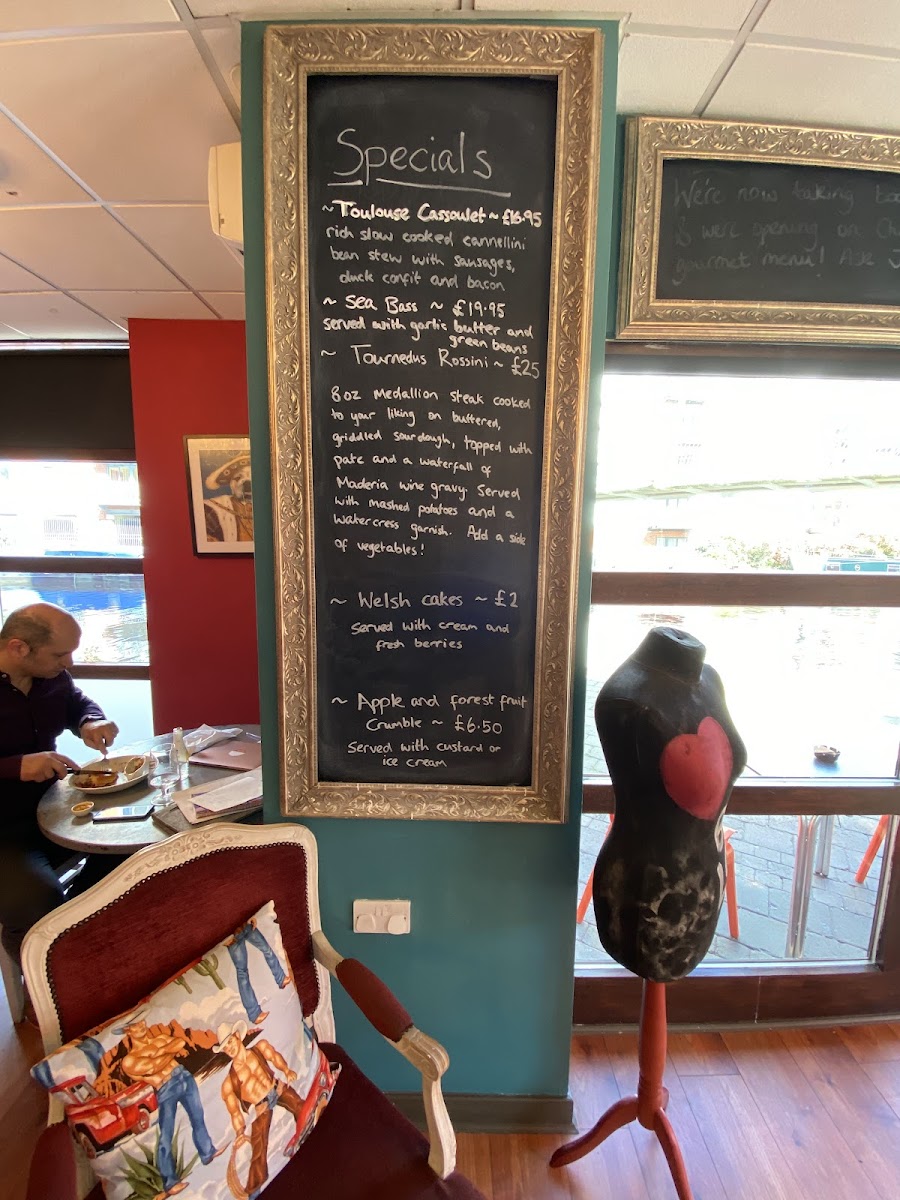 Specials
~ Toulouse Cassoulet ~ £16.95
rich slow cooked cannellini
bean stew with sausages,
duck confit and bacon
~ Sea Bass ~ £19.95
served with garlic butter and
green beans
~ Tournedus Rossini ~ £25
8oz Medallion steak cooked
to your liking on buttered,
griddled sourdough, topped with
pate and a waterfall of
Maderia wine gravy. Served
with mashed potatoes and a
watercress garnish. Add a side
of vegetables!
~ Welsh cakes ~ £2
Served with cream and
fresh berries
~ Apple and forest fruit
Crumble ~ £6.50
Served with custard or
ice cream
We're now taking
& we're opening on
gourmet menu! Ask